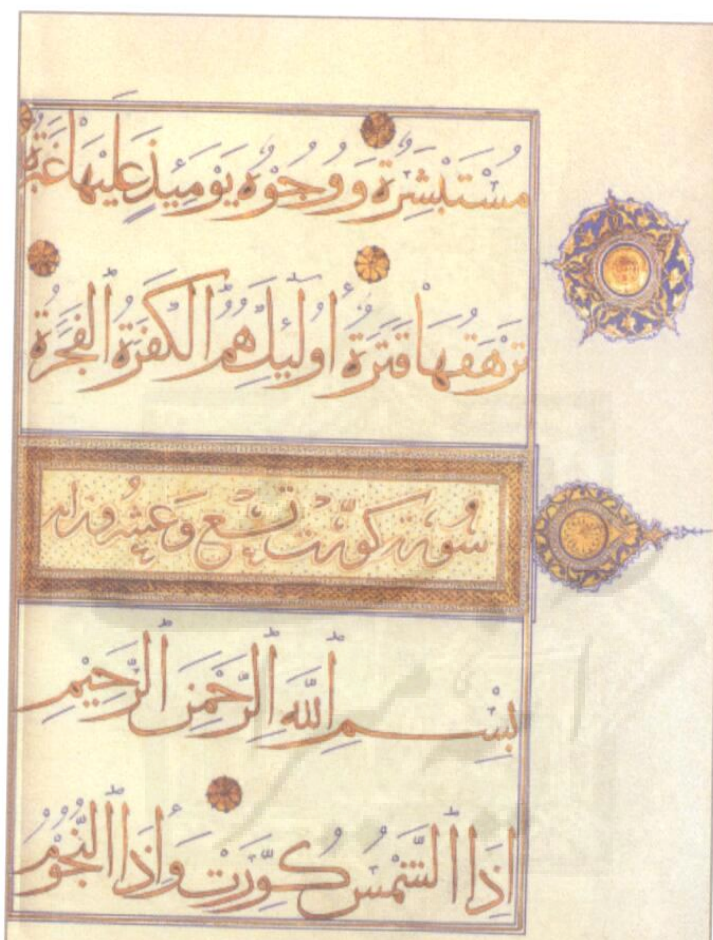 مُسْتَبْشِرَةٌ وَوُجُوْهٌ يَوْمَئِذٍ عَلَيْهَا غَبَرَةٌ
تَرْهَقُهَا قَتَرَةٌ أُولَٰئِكَ هُمُ الْكَفَرَةُ الْفَجَرَةُ
سُوْرَةُ كُوِّرَتْ تِسْعٌ وَعِشْرُوْنَ اٰيَة
بِسْمِ اللهِ الرَّحْمٰنِ الرَّحِيْمِ
اِذَا الشَّمْسُ كُوِّرَتْ وَاِذَا النُّجُوْمُ